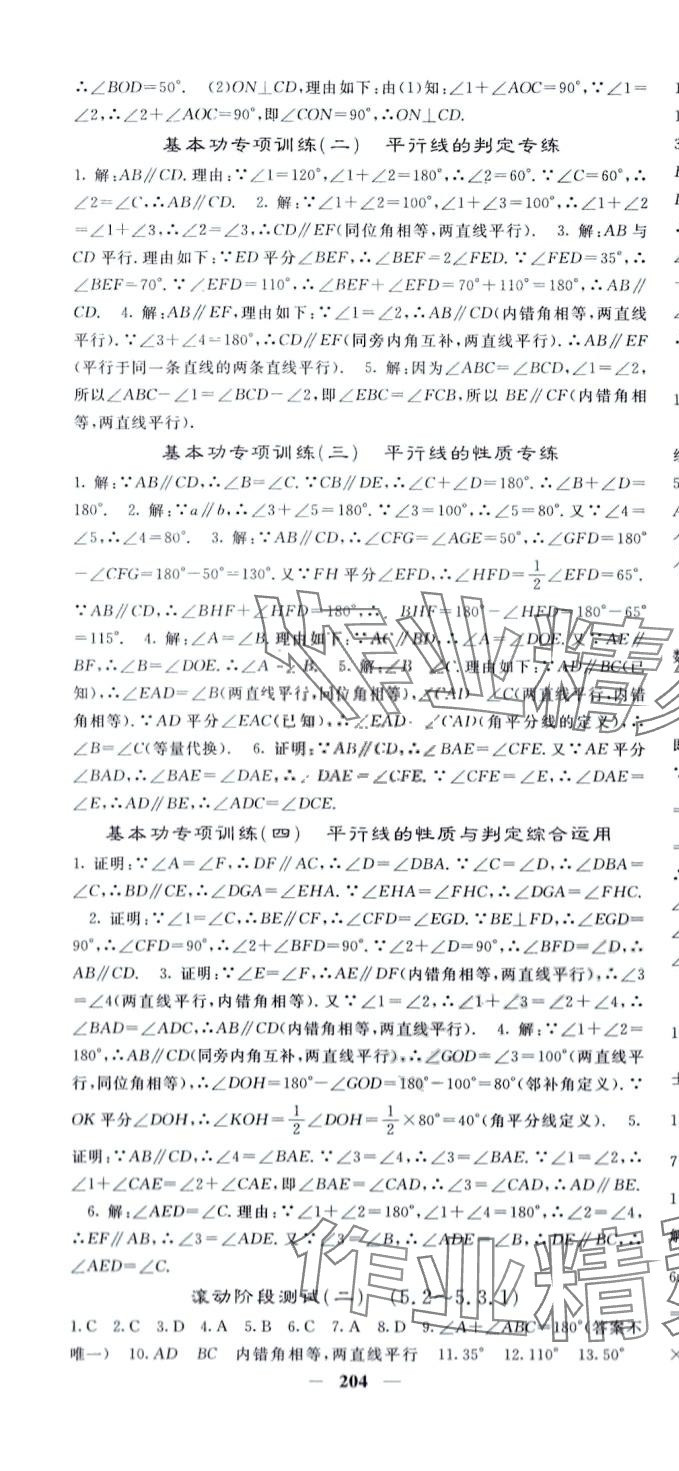 ∴∠BOD=50°. (2)ON⊥CD,理由如下:由(1)知:∠1+∠AOC=90°,∵∠1=
∠2,∴∠2+∠AOC=90°,即∠CON=90°,∴ON⊥CD.
基本功专项训练(二) 平行线的判定专练
1. 解:AB∥CD.理由:∵∠1=120°,∠1+∠2=180°,∴∠2=60°.∵∠C=60°,∴
∠2=∠C,∴AB∥CD. 2. 解:∵∠1+∠2=100°,∠1+∠3=100°,∴∠1+∠2
=∠1+∠3,∴∠2=∠3,∴CD∥EF(同位角相等,两直线平行). 3. 解:AB与
CD平行.理由如下:∵ED平分∠BEF,∴∠BEF=2∠FED.∵∠FED=35°,∴
∠BEF=70°.∵∠EFD=110°,∴∠BEF+∠EFD=70°+110°=180°,∴AB∥
CD. 4. 解:AB∥EF,理由如下:∵∠1=∠2,∴AB∥CD(内错角相等,两直线
平行).∵∠3+∠4=180°,∴CD∥EF(同旁内角互补,两直线平行).∴AB∥EF
(平行于同一条直线的两条直线平行). 5. 解:因为∠ABC=∠BCD,∠1=∠2,
所以∠ABC-∠1=∠BCD-∠2,即∠EBC=∠FCB,所以BE∥CF(内错角相
等,两直线平行).
基本功专项训练(三) 平行线的性质专练
1. 解:∵AB∥CD,∴∠B=∠C.∵CB∥DE,∴∠C+∠D=180°.∴∠B+∠D=
180°. 2. 解:∵a∥b,∴∠3+∠5=180°.∵∠3=100°,∴∠5=80°.又∵∠4=
∠5,∴∠4=80°. 3. 解:∵AB∥CD,∴∠CFG=∠AGE=50°,∴∠GFD=180°
-∠CFG=180°-50°=130°.又∵FH平分∠EFD,∴∠HFD=1/2∠EFD=65°.
∵AB∥CD,∴∠BHF+∠HFD=180°,∴ BHF=180°-∠HFD=180°-65°
=115°. 4. 解:∠A=∠B.理由如下:∵AC∥BD,∴∠A=∠DOE.又∵AE∥
BF,∴∠B=∠DOE.∴∠A=∠B. 5. 解:∠B ∠C.理由如下:∵AD∥BC(已
知),∴∠EAD=∠B(两直线平行,同位角相等),∠CAD ∠C(两直线平行,内错
角相等).∵AD平分∠EAC(已知),∴∠EAD ∠CAD(角平分线的定义),∴
∠B=∠C(等量代换). 6. 证明:∵AB∥CD,∴∠BAE=∠CFE.又∵AE平分
∠BAD,∴∠BAE=∠DAE,∴ DAE=∠CFE.∵∠CFE=∠E,∴∠DAE=
∠E,∴AD∥BE,∴∠ADC=∠DCE.
基本功专项训练(四) 平行线的性质与判定综合运用
1. 证明:∵∠A=∠F,∴DF∥AC,∴∠D=∠DBA.∵∠C=∠D,∴∠DBA=
∠C,∴BD∥CE,∴∠DGA=∠EHA.∵∠EHA=∠FHC,∴∠DGA=∠FHC.
2. 证明:∵∠1=∠C,∴BE∥CF,∴∠CFD=∠EGD.∵BE⊥FD,∴∠EGD=
90°,∴∠CFD=90°,∴∠2+∠BFD=90°.∵∠2+∠D=90°,∴∠BFD=∠D,∴
AB∥CD. 3. 证明:∵∠E=∠F,∴AE∥DF(内错角相等,两直线平行),∴∠3
=∠4(两直线平行,内错角相等).又∵∠1=∠2,∴∠1+∠3=∠2+∠4,∴
∠BAD=∠ADC,∴AB∥CD(内错角相等,两直线平行). 4. 解:∵∠1+∠2=
180°,∴AB∥CD(同旁内角互补,两直线平行),∴∠GOD=∠3=100°(两直线平
行,同位角相等),∴∠DOH=180°-∠GOD=180°-100°=80°(邻补角定义).∵
OK平分∠DOH,∴∠KOH=1/2∠DOH=1/2×80°=40°(角平分线定义). 5.
证明:∵AB∥CD,∴∠4=∠BAE.∵∠3=∠4,∴∠3=∠BAE.∵∠1=∠2,∴
∠1+∠CAE=∠2+∠CAE,即∠BAE=∠CAD,∴∠3=∠CAD,∴AD∥BE.
6. 解:∠AED=∠C.理由:∵∠1+∠2=180°,∠1+∠4=180°,∴∠2=∠4,
∴EF∥AB,∴∠3=∠ADE.又∵∠3=∠B,∴∠ADE=∠B,∴DE∥BC,∴
∠AED=∠C.
滚动阶段测试(二) (5.2~5.3.1)
1.C 2.C 3.D 4.A 5.B 6.C 7.A 8.D 9.∠A+∠ABC=180°(答案不
唯一) 10.AD BC 内错角相等,两直线平行 11.35° 12.110° 13.50°
— 204 —
作业精灵
作业精灵